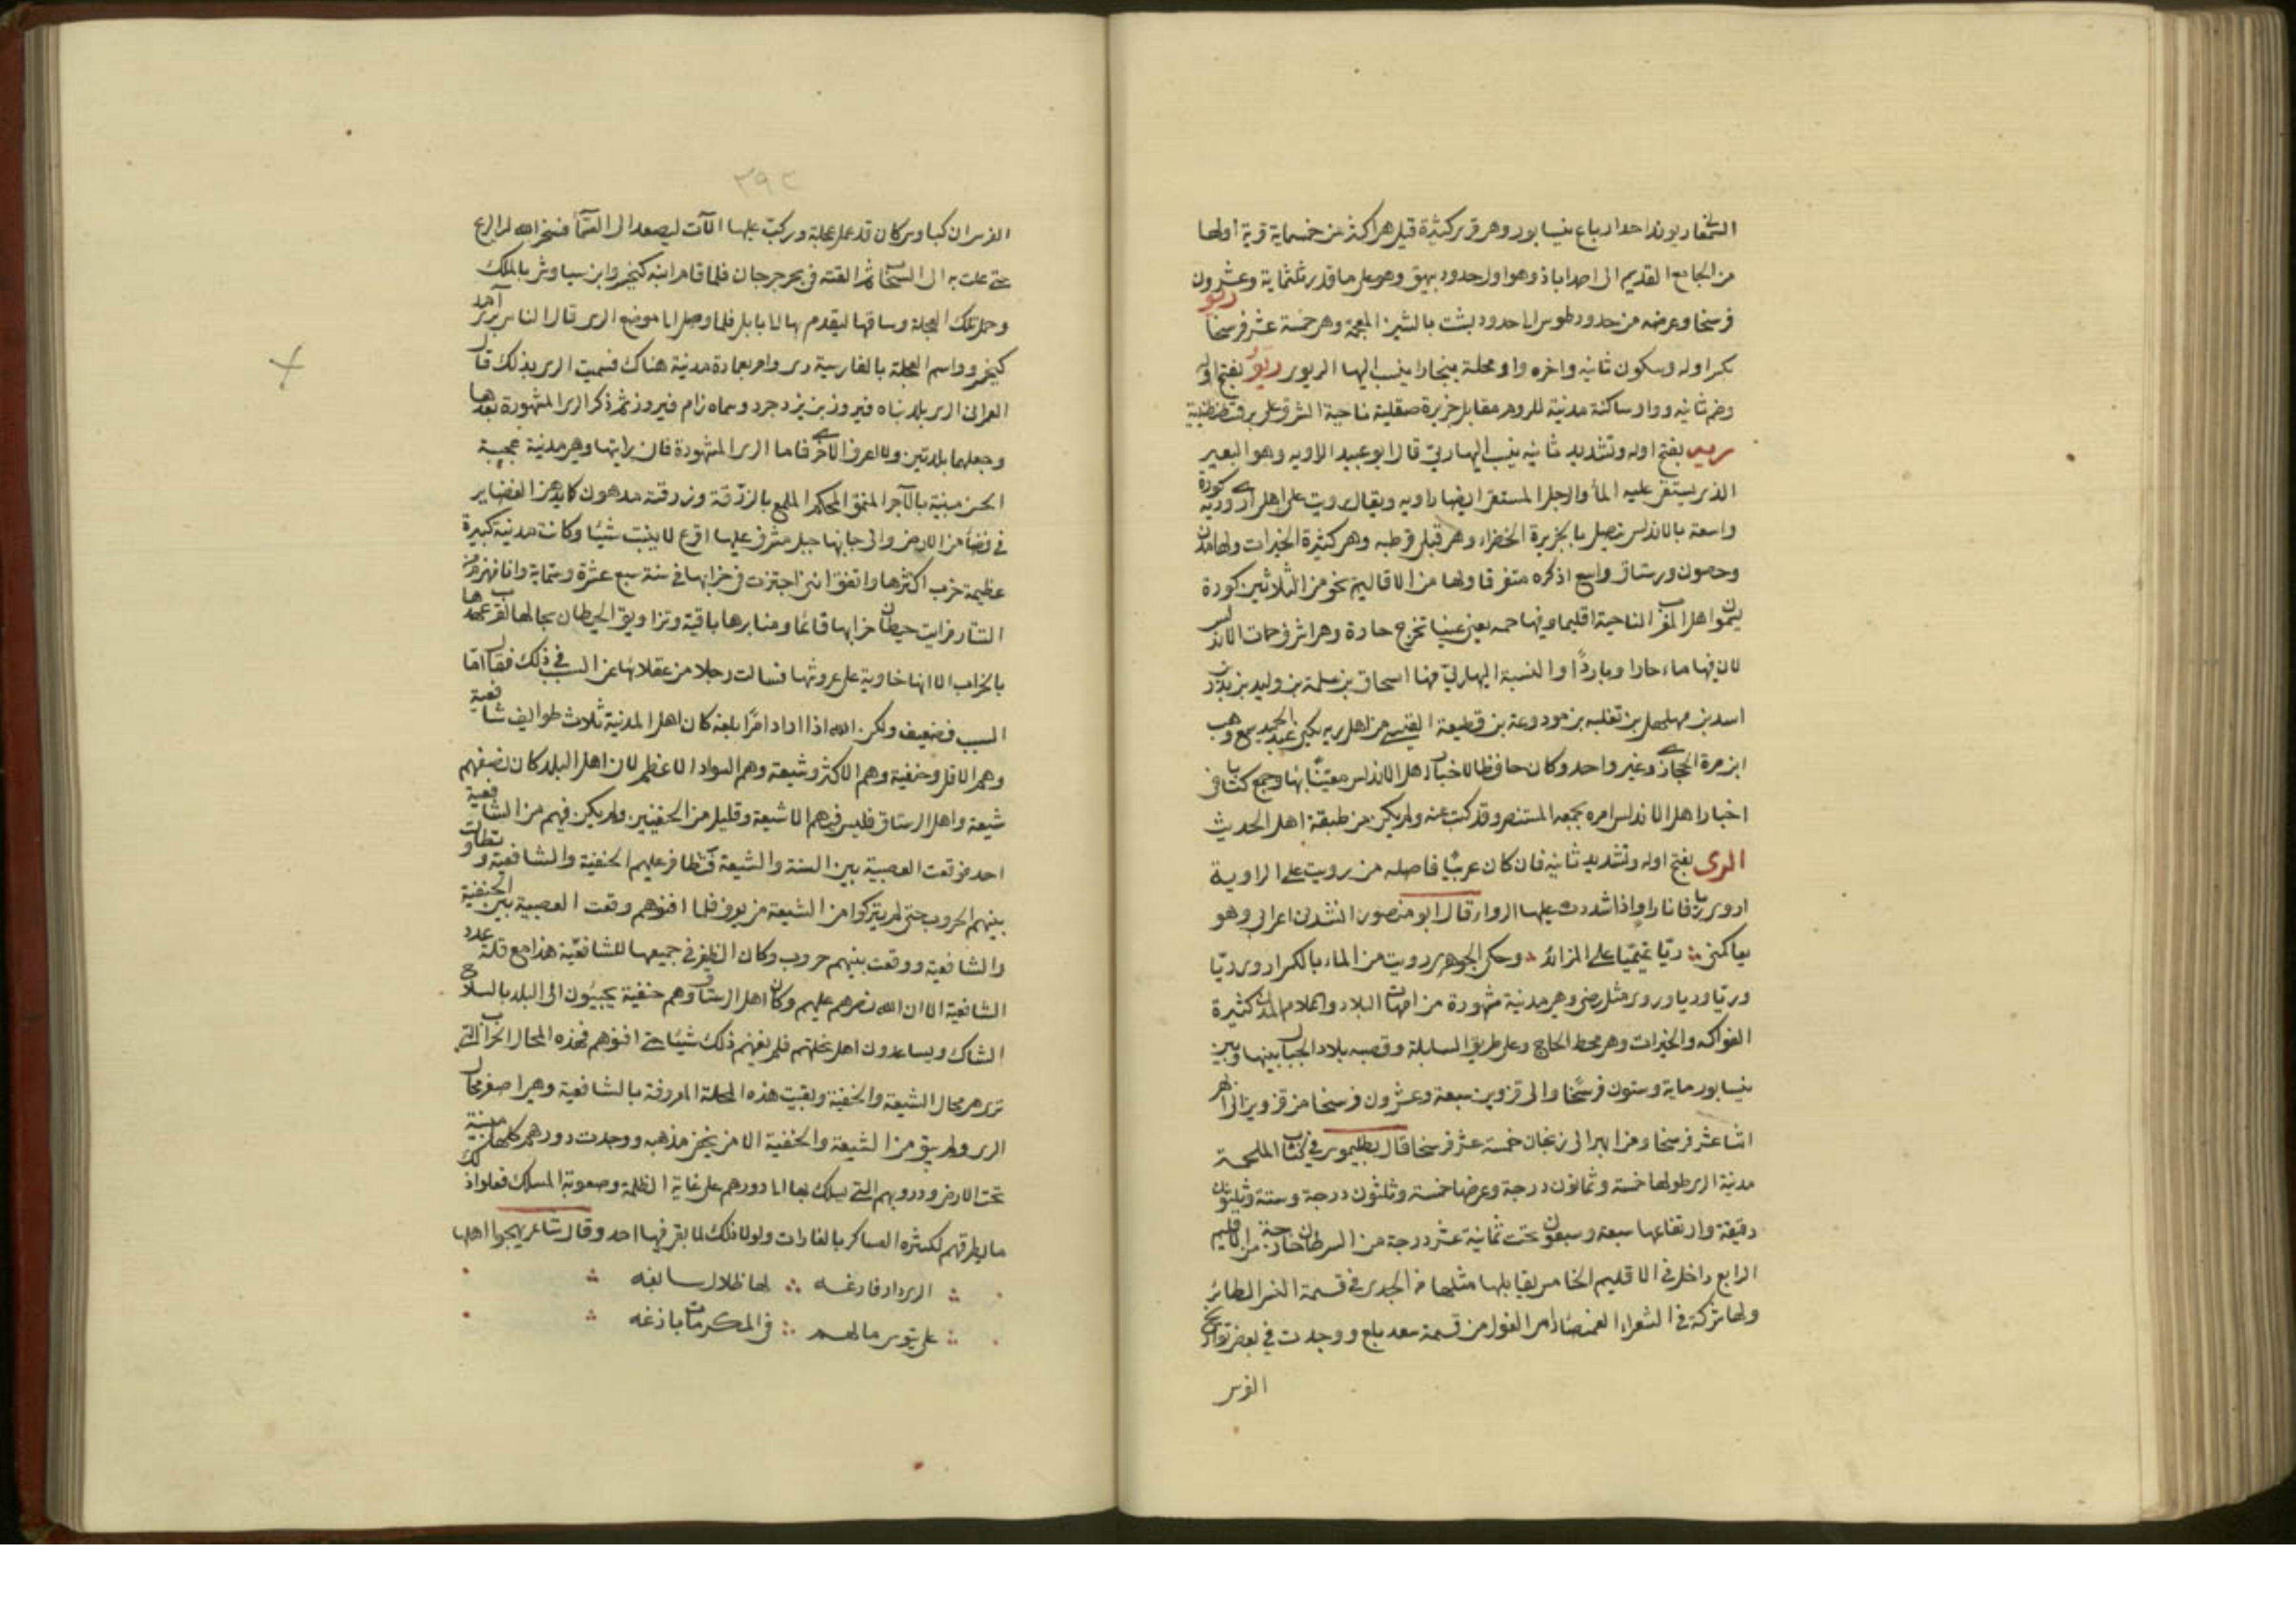 الشغار ريوند احد ارباع نيسابور وهى قرى كثيرة قيل هى اكثر من خمسماية قرية اولها
من الجامع القديم الى احداباذ وهو اول حدود بيهق وهو على ما قدر ثلثماية وعشرون
فرسخا وعرضه من حدود طوس الى حدود بشت بالشين المعجمة وهى خمسة عشر فرسخا ريو
بكسر اوله وسكون ثانيه واخره واو محلة ببخارا ينسب اليها الريوى ريو بفتح اوله
وضم ثانيه وواو ساكنة مدينة للروم مقابل جزيرة صقلية ناحية الشرق على بر قسطنطينية
ريه بفتح اوله وتشديد ثانيه ينسب اليها ريى قال ابو عبيد الراويه وهو البعير
الذى يستقى عليه الماء والرجل المستقى ايضا راويه ويقال رويت على اهلى اروى ريه كورة
واسعة بالاندلس متصل بالجزيرة الخضراء وهى قبلى قرطبه وهى كثيرة الخيرات ولها مدن
وحصون ورستاق واسع اذكره متفرقا ولها من الاقاليم نحو من الثلاثين كورة
يسموا اهل المغرب الناحية اقليما وفيها حمه يعنى عينا تخرج حارة وهى اشرف حمات الاندلس
لان فيها ماء حارا وباردا والنسبة اليها ريى منها اسحاق بن سلمة بن وليد بن زيد بن
اسد بن مهلهل بن ثعلبه بن مودوعة بن قطيعة القينى من اهل ريه يكنى عبد الحميد سمع وهب
ابن مرة الحجارى وغير واحد وكان حافظا لاخبار اهل الاندلس معتنيا بها وجمع كتابا فى
اخبار اهل الاندلس امره بجمعه المستنصر وقد كتب عنه ولم يكن من طبقة اهل الحديث
الرى بفتح اوله وتشديد ثانيه فان كان عربيا فاصله من رويت على الراوية
اروى ريا فانا راو اذا شددت عليها الرواء وقال ابو منصور انشدنى اعرابى وهو
يعاكمنى ريا تميميا على المزائد وحكى الجوهرى رويت من الماء بالكسر اروى ريا
وريا وريا وروى مثل رضى وهى مدينة مشهورة من امهات البلاد واعلام المدن كثيرة
الفواكه والخيرات وهى محط الحاج وعلى طريق السابلة وقصبه بلاد الجبال بينها وبين
نيسابور ماية وستون فرسخا والى قزوين سبعة وعشرون فرسخا من قزوين الى ابهر
اثنا عشر فرسخا ومن ابهر الى زنجان خمسة عشر فرسخا قال بطليموس فى كتاب الملحمة
مدينة الرى طولها خمسة وثمانون درجة وعرضها خمسة وثلثون درجة وستة وثلثون
دقيقة وارتفاعها سبعة وسبعون تحت ثمانية عشر درجة من السرطان خارجة من الاقليم
الرابع داخل فى الاقليم الخامس يقابلها مثلها من الجدى فى قسمة النسر الطائر
ولها شركة فى الشعراء الغميصاء راس الغول من قسمة سعد بلع ووجدت فى بعض تواريخ
الفرس
٣٩٢
الفرس ان كيكاوس كان قد عمل عجلة وركب عليها الآت ليصعد الى السماء فسخر الله له الريح
حتى علت به الى السحاب ثم القته فى بحر جرجان فلما قام ابنه كيخسرو ابن سياوش بالملك
وحمل تلك العجلة وساقها ليقدم بها الى بابل فلما وصل الى موضع الرى قال الناس برى آمد
كيخسرو واسم العجلة بالفارسية رى وامر بعمارة مدينة هناك فسميت الرى بذلك قال
العمرانى الرى بلد بناه فيروز بن يزدجرد وسماه رام فيروز ثم ذكر الرى المشهورة بعدها
وجعلهما بلدتين ولا اعرف الاخرى فاما الرى المشهورة فانى رايتها وهى مدينة عجيبة
الحسن مبنية بالآجر المنمق المحكم الملمع بالزرقة وزرقته مدهون كما يدهن الغضاير
فى فضاء من الارض والى جانبها جبل مشرف عليها اقرع لا ينبت شيئا وكانت مدينة كبيرة
عظيمة خرب اكثرها واتفق اننى اجتزت فى خرابها فى سنة سبع عشرة وستماية وانا منهزم من
التتار فرايت حيطان خرابها قائما ومنابرها باقية وتزاويق الحيطان بحالها لقرب عهدها
بالخراب الا انها خاوية على عروشها فسالت رجلا من عقلائها عن السبب فى ذلك فقال اما
السبب فضعيف ولكن الله اذا اراد امرا بلغه كان اهل المدينة ثلاث طوايف شافعية
وهم الاقل وحنفية وهم الاكثر وشيعة وهم السواد الاعظم لان اهل البلد كان نصفهم
شيعة واهل الرستاق فليس فيهم الا شيعة وقليل من الحنفيين ولم يكن فيهم من الشافعية
احد فوقعت العصبية بين السنة والشيعة فتظافر عليهم الحنفية والشافعية وتطاولت
بينهم الحروب حتى لم يتركوا من الشيعة من يعرف فلما افنوهم وقعت العصبية بين الحنفية
والشافعية ووقعت بينهم حروب وكان الظفر فى جميعها للشافعية هذا مع قلة عدد
الشافعية الا ان الله نصرهم عليهم وكان اهل الرستاق وهم حنفية يجيئون الى البلد بالسلاح
الشاك ويساعدون اهل نحلتهم فلم يغنهم ذلك شيئا حتى افنوهم فهذه المحال الخراب التى
ترى هى محال الشيعة والحنفية وبقيت هذه المحلة المعروفة بالشافعية وهى اصغر محال
الرى ولم يبق من الشيعة والحنفية الا من يخفى مذهبه ووجدت دورهم كلها مبنية
تحت الارض ودروبهم التى يسلك بها الى دورهم على غاية الظلمة وصعوبة المسلك فعلوا ذلك
ما يطرقهم لكثرة العساكر بالغارات ولولا ذلك لما بقى فيها احد وقال شاعر يهجوا اهلها
الرى دار فارغه لها ظلال سابغه
على تيوس ما لهم فى المكرمات بازغه